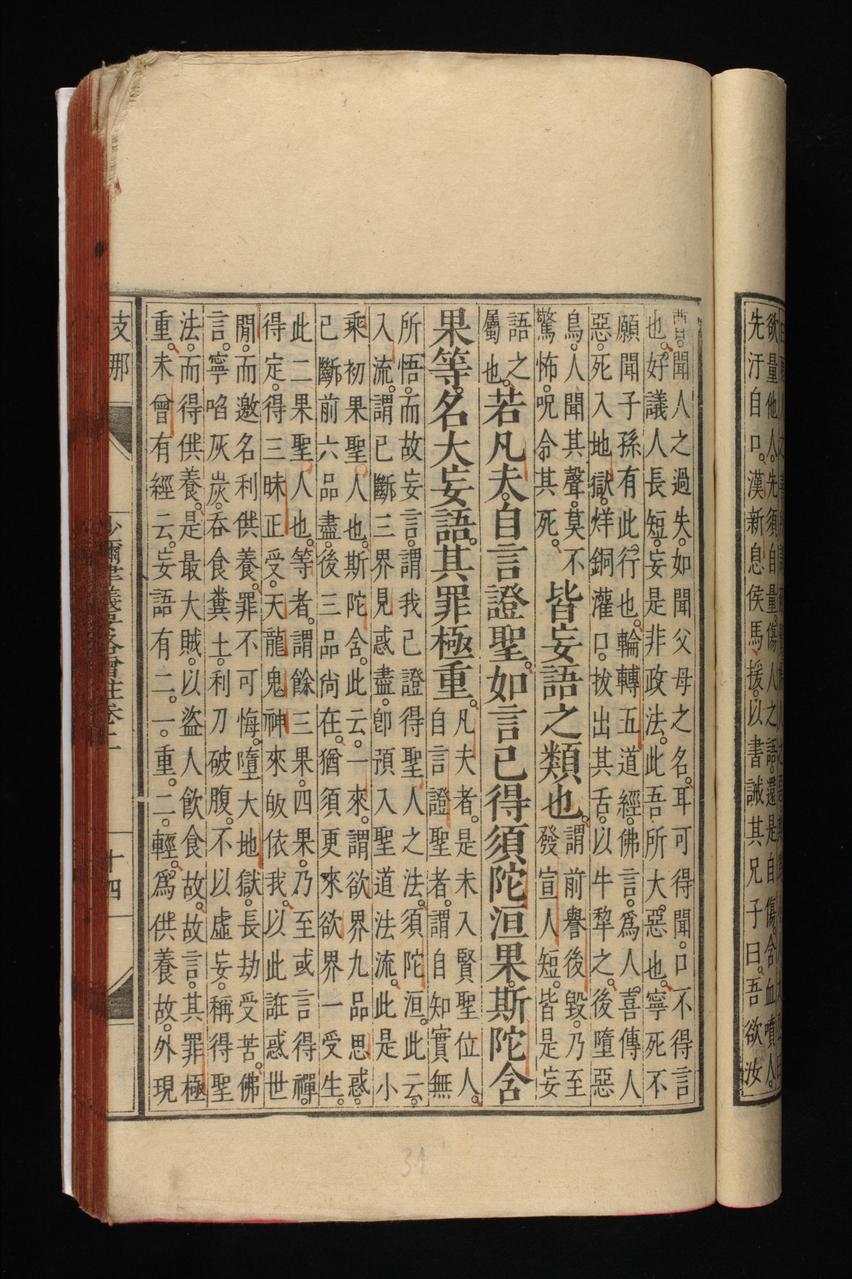 欲量他人。先須自量。傷人之語。還是自傷。含血噴人。
先汙自口。漢新息侯馬援。以書誡其兄子曰。吾欲汝
曹聞人之過失。如聞父母之名。耳可得聞。口不得言
也。好議人長短。妄是非政法。此吾所大惡也。寧死不
願聞子孫有此行也。輪轉五道經。佛言。為人喜傳人
惡。死入地獄。烊銅灌口。拔出其舌。以牛犂之。後墮惡
鳥。人聞其聲。莫不
驚怖。呪令其死。
皆妄語之類也。
謂前譽後毀。乃至
發宣人短。皆是妄
語之
屬也。
若凡夫自言證聖。如言已得須陀洹果。斯陀含
果等。名大妄語。其罪極重。
凡夫者。是未入賢聖位人。
自言證聖者。謂自知實無
所悟。而故妄言。謂我已證得聖人之法。須陀洹。此云
入流。謂已斷三界見惑盡。即預入聖道法流。此是小
乘初果聖人也。斯陀含。此云一來。謂欲界九品思惑。
已斷前六品盡。後三品尚在。猶須更來欲界一受生。
此二果聖人也。等者。謂餘三果。四果。乃至或言得禪。
得定。得三昧正受。天龍鬼神來皈依我。以此誑惑世
閒。而邀名利供養。罪不可悔。墮大地獄。長劫受苦。佛
言。寧啗灰炭。吞食糞土。利刀破腹。不以虛妄。稱得聖
法。而得供養。是最大賊。以盜人飲食故。故言其罪極
重。未曾有經云。妄語有二。一重。二輕。為供養故。外現
支那
沙彌律儀要略增註卷
十四
31